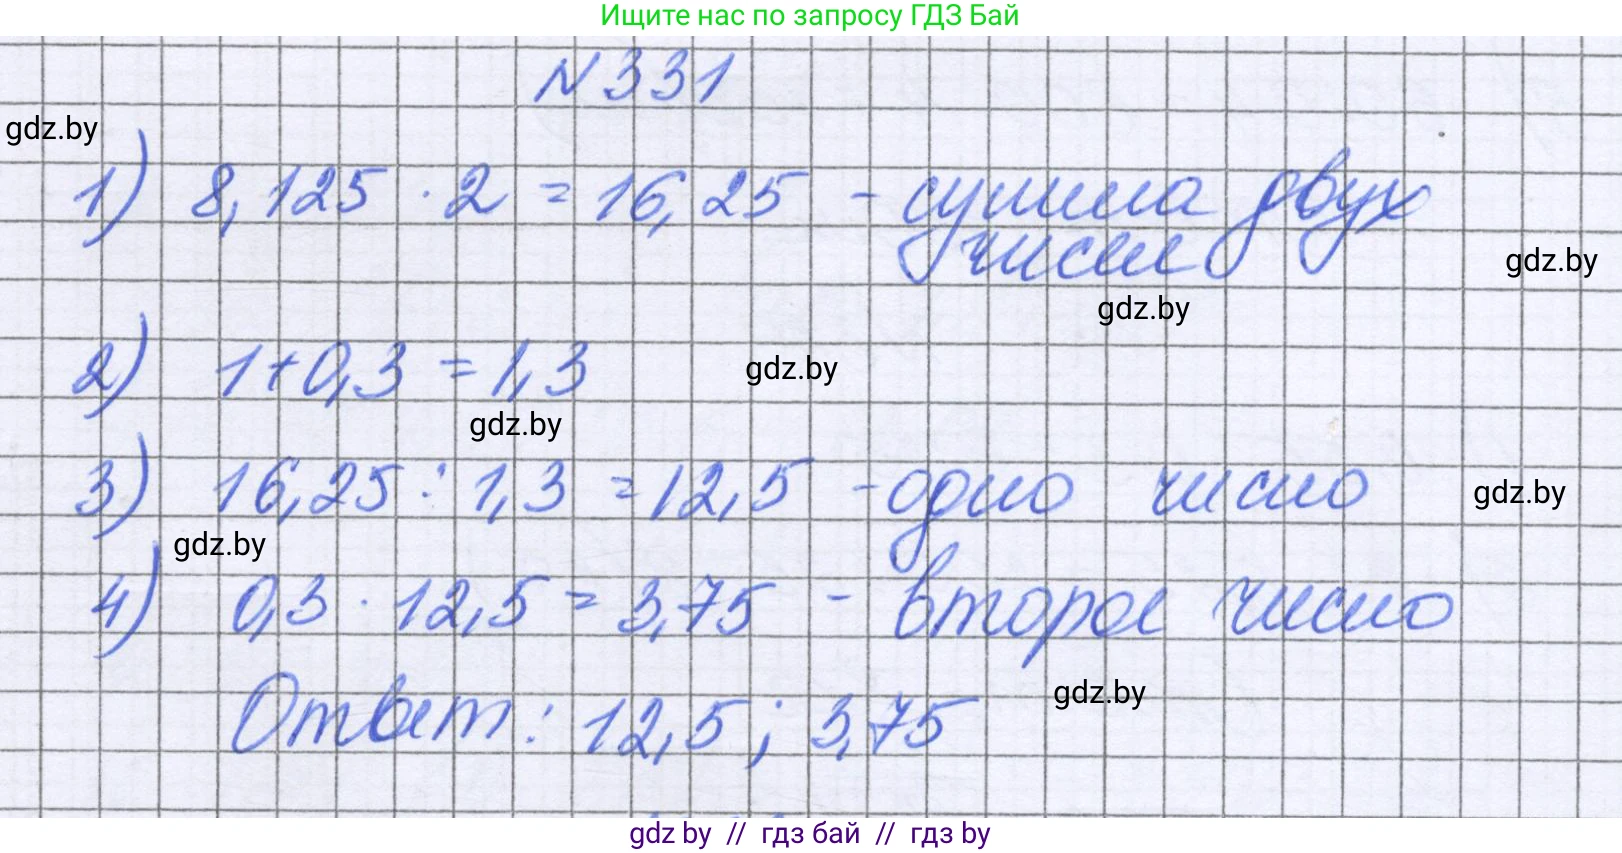 Ищите нас по запросу ГДЗ Бай
N 331
gdz.by
1) 8,125 · 2 = 16,25 - сумма двух
чисел
gdz.by
gdz.by
2) 1+0,3 = 1,3
gdz.by
gdz.by
3) 16,25 : 1,3 = 12,5 - одно число
gdz.by
gdz.by
4) 0,3 · 12,5 = 3,75 - второе число
Ответ: 12,5 ; 3,75
gdz.by
gdz by // гдз бай // гдз by